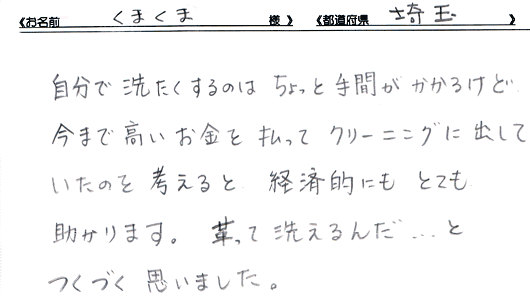 《お名前 くまくま 様》 《都道府県 埼玉 》
自分で洗たくするのは ちょっと手間が かかるけど
今まで高いお金を払って クリーニングに出して
いたのを考えると 経済的にも とても
助かります。 革って洗えるんだ…と
つくづく思いました。